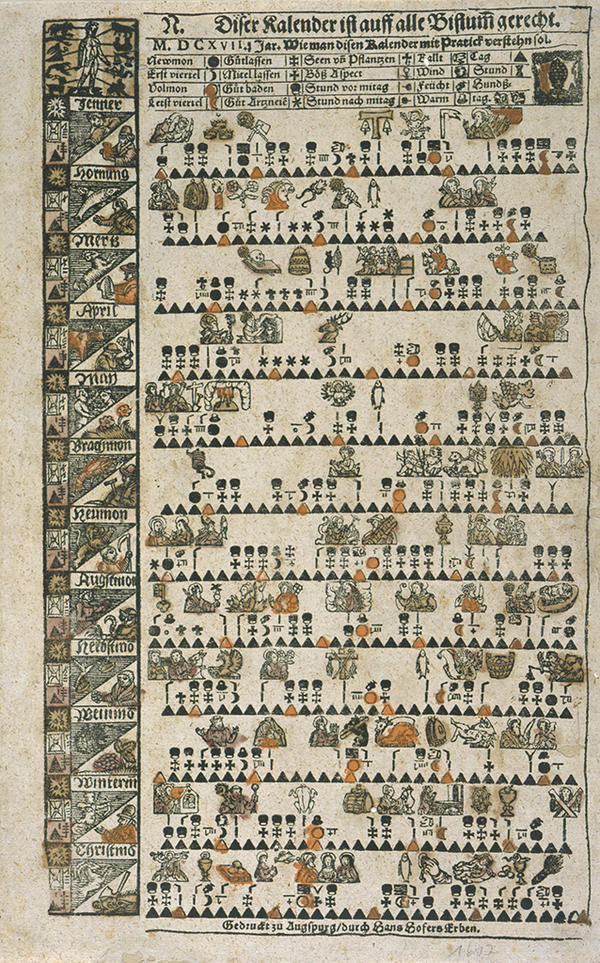 N. Diser Kalender ist auff alle Bistum̃ gerecht.
M. DCXVII. Jar. Wie man disen Kalender mit Pratick verstehn sol.
Newmon Gůtlassen Seen vñ Pflanzen Kallt Tag
Erst viertel Mitel lassen Bőß Aspect Wind Stund
Volmon Gůt baden Stund vor mitag Feücht Hundß
Letst viertel Gůt Artzneiẽ Stund nach mitag Warm tag.
Jenner
Hornung
Mertz
April
May
Brachmon
Heumon
Augstmon
Herbstmo
Weinmo
Winterm
Christmo
Gedruckt zu Augspurg/durch Hans Hofers Erben.